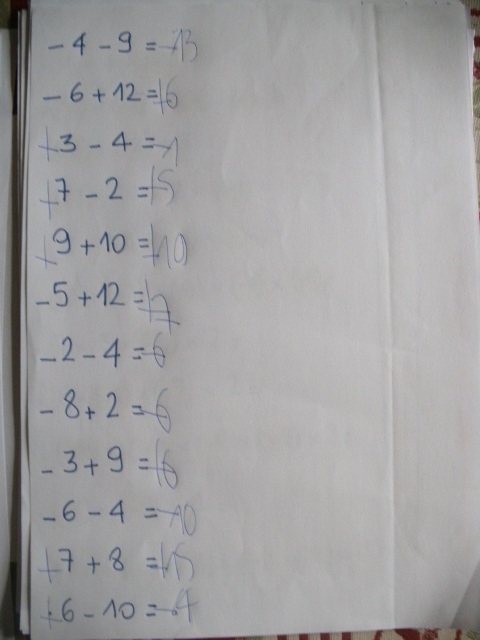 -4-9=-13
-6+12=+6
+3-4=-1
+7-2=+5
+9+10=+10
-5+12=+7
-2-4=-6
-8+2=-6
-3+9=+6
-6-4=-10
+7+8=+15
+6-10=-4